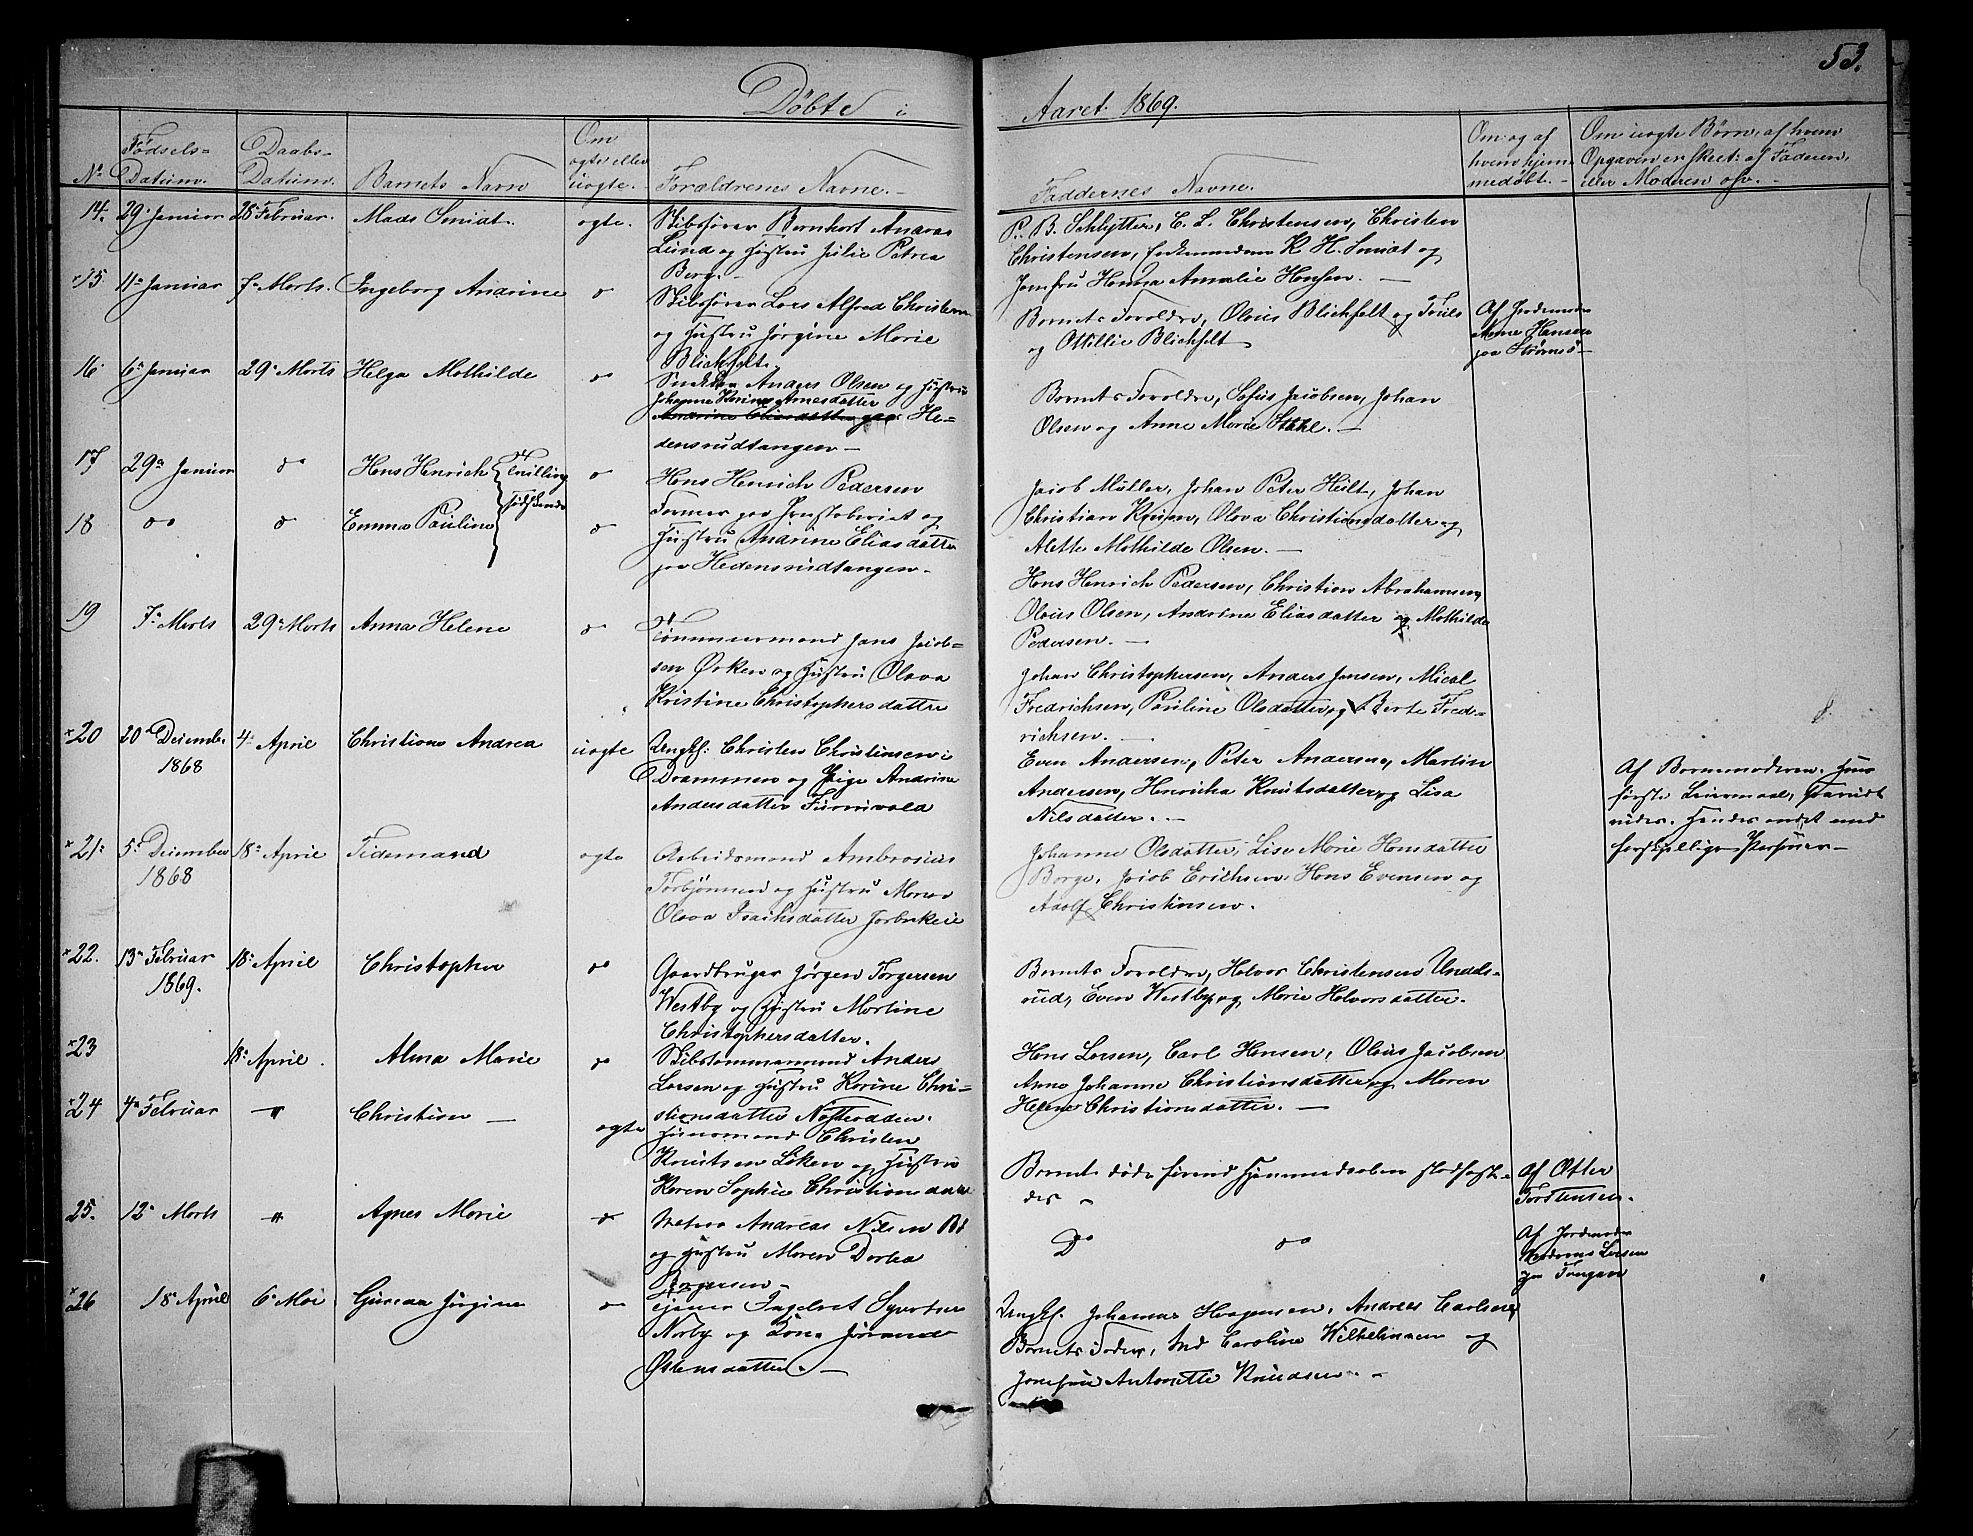 53.
Döbte i Aaret 1869.
No. Födsels-Datum. Daabs-Datum. Barnets Navn Om ægte eller uægte. Forældrenes Navne. Faddernes Navne. Om og af hvem hjemmedøbt. Om uægte Børn, af hvem Opgaven er skeet: af Faderen, eller Moderen osv.
14. 29 Januar 28 Februar. Mads Smidt. ægte. Skibsfører Bernhart Andreas
Lund og Hustru Julie Petrea
Berg.
P. B. Schlytter, C. L. Christensen, Christen
Christensen, K. H. Smidt og
Jomfru Hanna Amalie Hansen.
15 11 Januar 7 Marts. Ingeborg Andrine do Skibsfører Lars Alfred Christensen
og Hustru Jørgine Marie
Blichfelt.
Barnets Forældre, Olaus Blichfelt og
og Ottilie Blichfelt
Af Jordemoder
Hansen
paa
16 6 Januar 29 Marts Helga Mathilde do Anders Olsen og Hustru
Johanne Karine Arnesdatter
Andrine Eliasdatter paa He-
densrudtangen
Barnets Forældre, Sofus Jacobsen, Johan
Olsen og Anne Marie
17 29 Januar do Hans Henrich Tvilling do Hans Henrich Pedersen
18 do do Emma Pauline Sødskende do
og
Hustru Andrine Eliasdatter
paa Hedensrudtangen.
Jacob Müller, Johan Peter Hult, Johan
Christian Olava Christiansdatter og
Alette Mathilde Olsen.
Hans Henrich Pedersen, Christian Abrahamsen,
Olaus Olsen, Andrine Eliasdatter og Mathilde
Pedersen.
19 7 Marts 29 Marts Anna Helene do Tømmermand Hans Jacob-
sen Ørken og Hustru Olava
Kristine Christophersdatter
Johan Christophersen, Anders Jensen, Micael
Fredrichsen, Pauline Olsdatter, og Berte Fred-
richsen.
20 20 December 1868 4 April Christiane Andrea uægte Ungkf: Christen Christensen i
Drammen og Pige Andrine
Andersdatter
Even Andersen, Peter Andersen, Martin
Andersen, Henricha Knutsdatter og Lisa
Nilsdatter.
Af Barnemoderen. Hans
første Leiermaal,
Hendes andet med
forskjellige Personer
21. 5 December 1868 18 April Tidemand ægte Arbeidsmand Ambrosius
Torbjörnsen og Hustru Maren
Olava Isachsdatter
Johanne Olsdatter, Lise Marie Hansdatter
Berge, Jacob Erichsen, Hans Evensen og
Adolf Christensen.
22. 13 Februar 1869. 18 April Christopher do Gaardbruger Jørgen Torgersen
Westby og Hustru Martine
Christophersdatter.
Barnets Forældre, Halvor Christensen Undels-
rud, Even Westby og Marie Halvorsdatter.
23 18 April. Alma Marie do Skibstømmermand Anders
Larsen og Hustru Karine Chri-
stiansdatter
Hans Larsen, Carl Hansen, Olaus Jacobsen
Anne Johanne Christiansdatter og Maren
Helene Christiansdatter.
24 4 Februar " Christian ægte Huusmand Christen
Knutsen Løken og Hustru
Karen Sophie Christiansdatter
Barnet døde førend Hjemmedaaben stadfæste-
des
Af Otter
Torstensen.
25. 12 Marts " Agnes Marie do Matros Andreas Nilsen
og Hustru Maren Dorthea
Do do
Af Jordemoder
Larsen
paa Tangen
26 18 April 6 Mai Gunda Jørgine do Ingelvat Syvertsen
Narby og Kone
Østensdatter.
Ungkf. Johannes Haagensen, Andreas Carlsen,
Barnets Fader, Caroline Wilhelmsen og
Jomfru Antonette Knudsen.